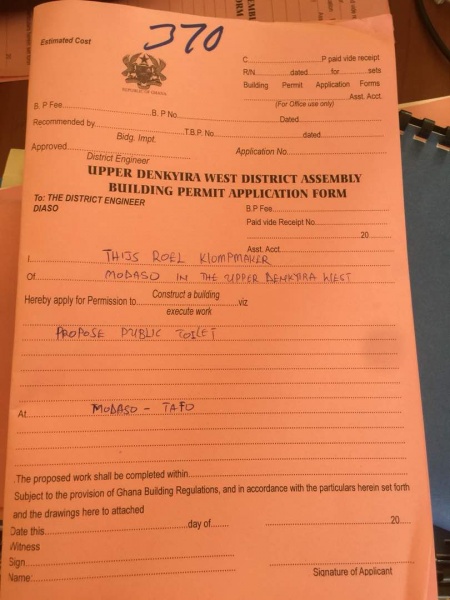 Estimated Cost
370
REPUBLIC OF GHANA
C..................P paid vide receipt
R/N..........dated..........for..........sets
Building Permit Application Forms
....................Asst. Acct.
(For Office use only)
B. P Fee....................B. P No....................Dated....................
Recommended by....................T.B.P. No....................dated....................
Bldg. Impt.
Approved....................Application No....................
District Engineer
UPPER DENKYIRA WEST DISTRICT ASSEMBLY
BUILDING PERMIT APPLICATION FORM
To: THE DISTRICT ENGINEER
DIASO
B.P Fee....................
Paid vide Receipt No....................
....................20..........
Asst. Acct....................
I THIJS ROEL KLOMPMAKER
Of MODASO IN THE UPPER DENKYIRA WEST
Hereby apply for Permission to Construct a building viz
execute work
PROPOSE PUBLIC TOILET
At MODASO - TAFO
The proposed work shall be completed within....................
Subject to the provision of Ghana Building Regulations, and in accordance with the particulars herein set forth
and the drawings here to attached
Date this....................day of....................20..........
Witness
Sign....................
Name:....................
Signature of Applicant